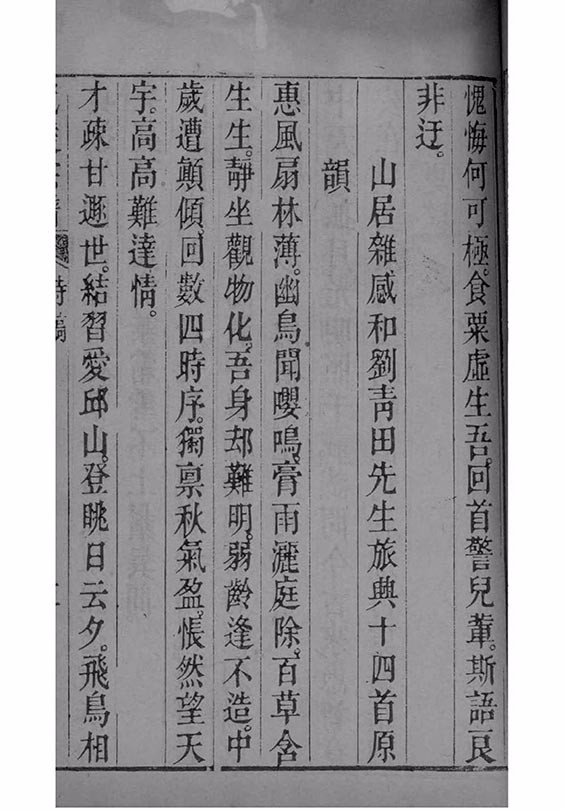 愧悔何可極。食粟虛生吾。回首警兒輩。斯語良
非迂。
山居雜感和劉青田先生旅興十四首原
韻
惠風扇林薄。幽鳥聞嚶鳴。膏雨灑庭除。百草含
生生。靜坐觀物化。吾身却難明。弱齡逢不造。中
歲遭顛傾。回數四時序。獨禀秋氣盈。悵然望天
宇。高高難達情。
才疎甘遯世。結習愛邱山。登眺日云夕。飛鳥相
詩稿